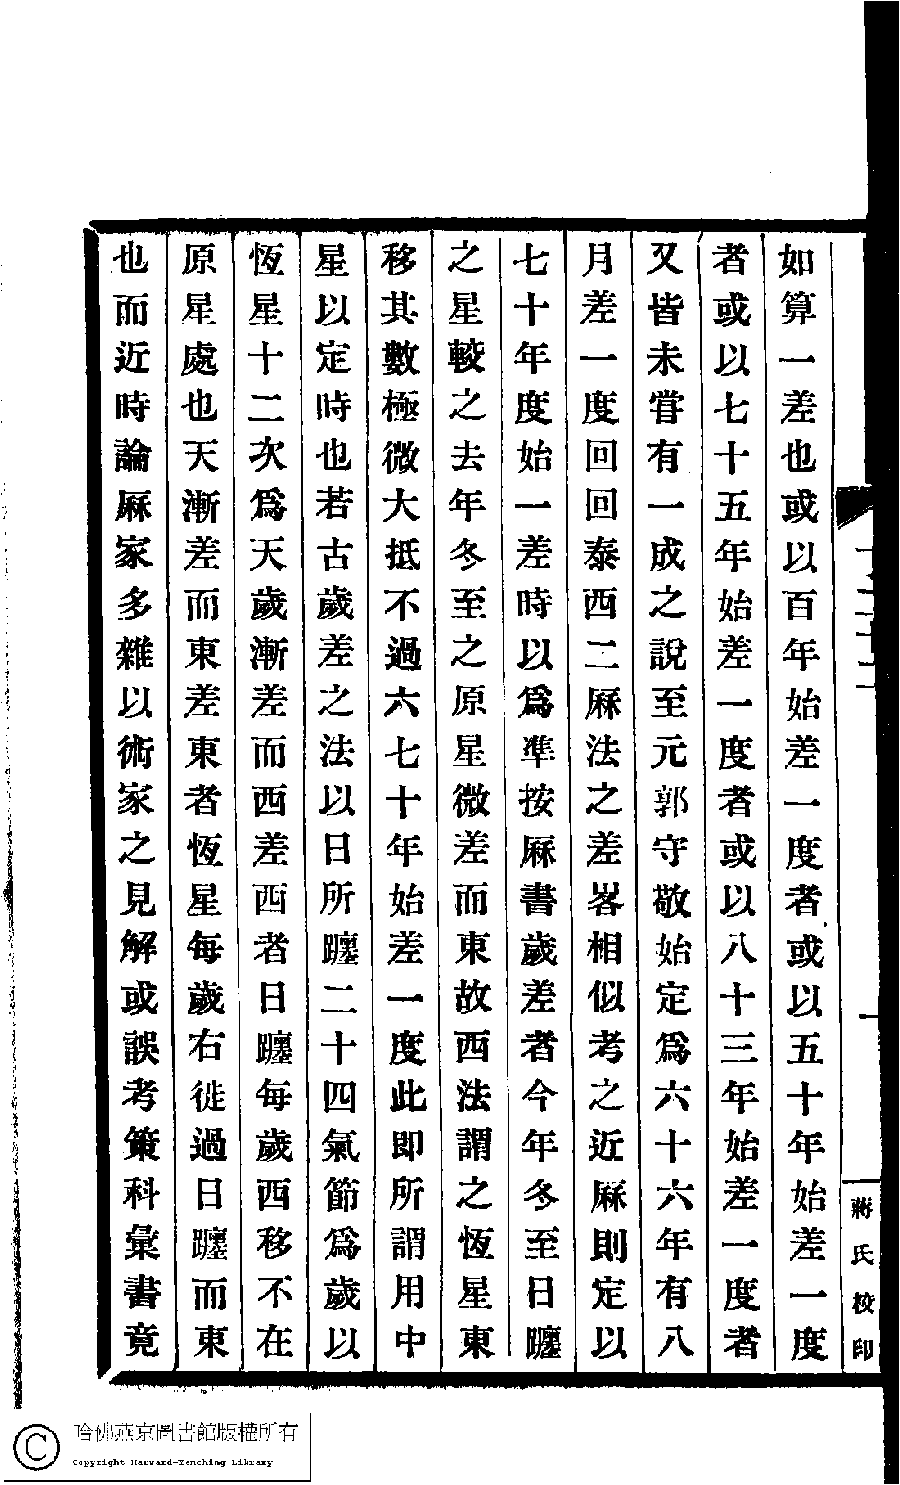 如算一差也或以百年始差一度者或以五十年始差一度
者或以七十五年始差一度者或以八十三年始差一度者
又皆未嘗有一成之說至元郭守敬始定爲六十六年有八
月差一度回回泰西二厤法之差畧相似考之近厤則定以
七十年度始一差時以爲準按厤書歲差者今年冬至日躔
之星較之去年冬至之原星微差而東故西法謂之恆星東
移其數極微大抵不過六七十年始差一度此即所謂用中
星以定時也若古歲差之法以日所躔二十四氣節爲歲以
恆星十二次爲天歲漸差而西差西者日躔每歲西移不在
原星處也天漸差而東差東者恆星每歲右徙過日躔而東
也而近時論厤家多雜以術家之見解或誤考策科彙書竟
蔣氏校印
哈佛燕京圖書館版權所有
Copyright Harvard-Yenching Library